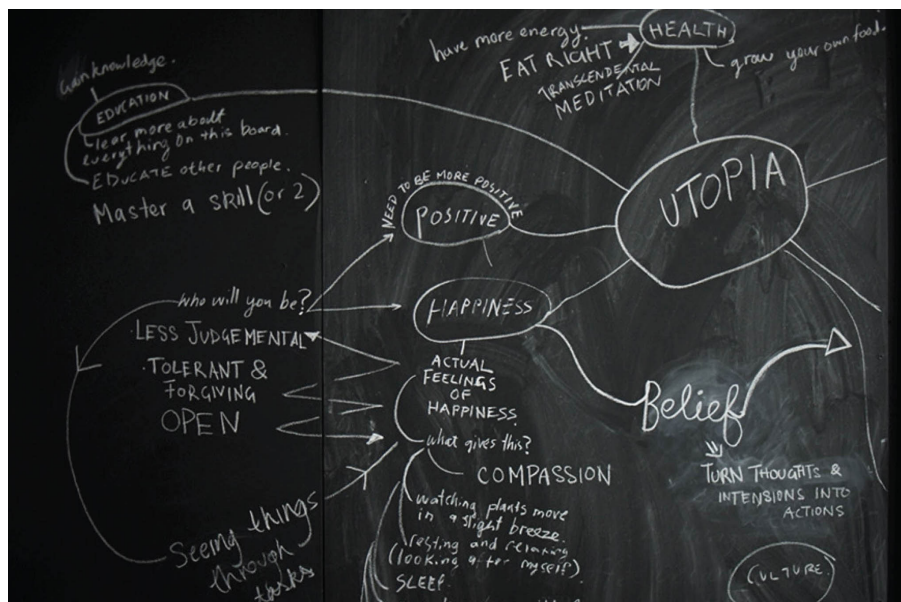 Gain knowledge.
EDUCATION
lear more about
everything on this board.
EDUCATE other people.
Master a skill (or 2)
have more energy.
EAT RIGHT
TRANSCENDENTAL
MEDITATION
HEALTH
grow your own food.
UTOPIA
NEED TO BE MORE POSITIVE
POSITIVE
who will you be?
·LESS JUDGEMENTAL
·TOLERANT &
FORGIVING
OPEN
Seeing things
through
tasks
HAPPINESS
ACTUAL
FEELINGS
OF
HAPPINESS
what gives this?
COMPASSION
watching plants move
in a slight breeze.
resting and relaxing
(looking after myself).
SLEEP.
Belief
TURN THOUGHTS &
INTENSIONS INTO
ACTIONS
CULTURE.